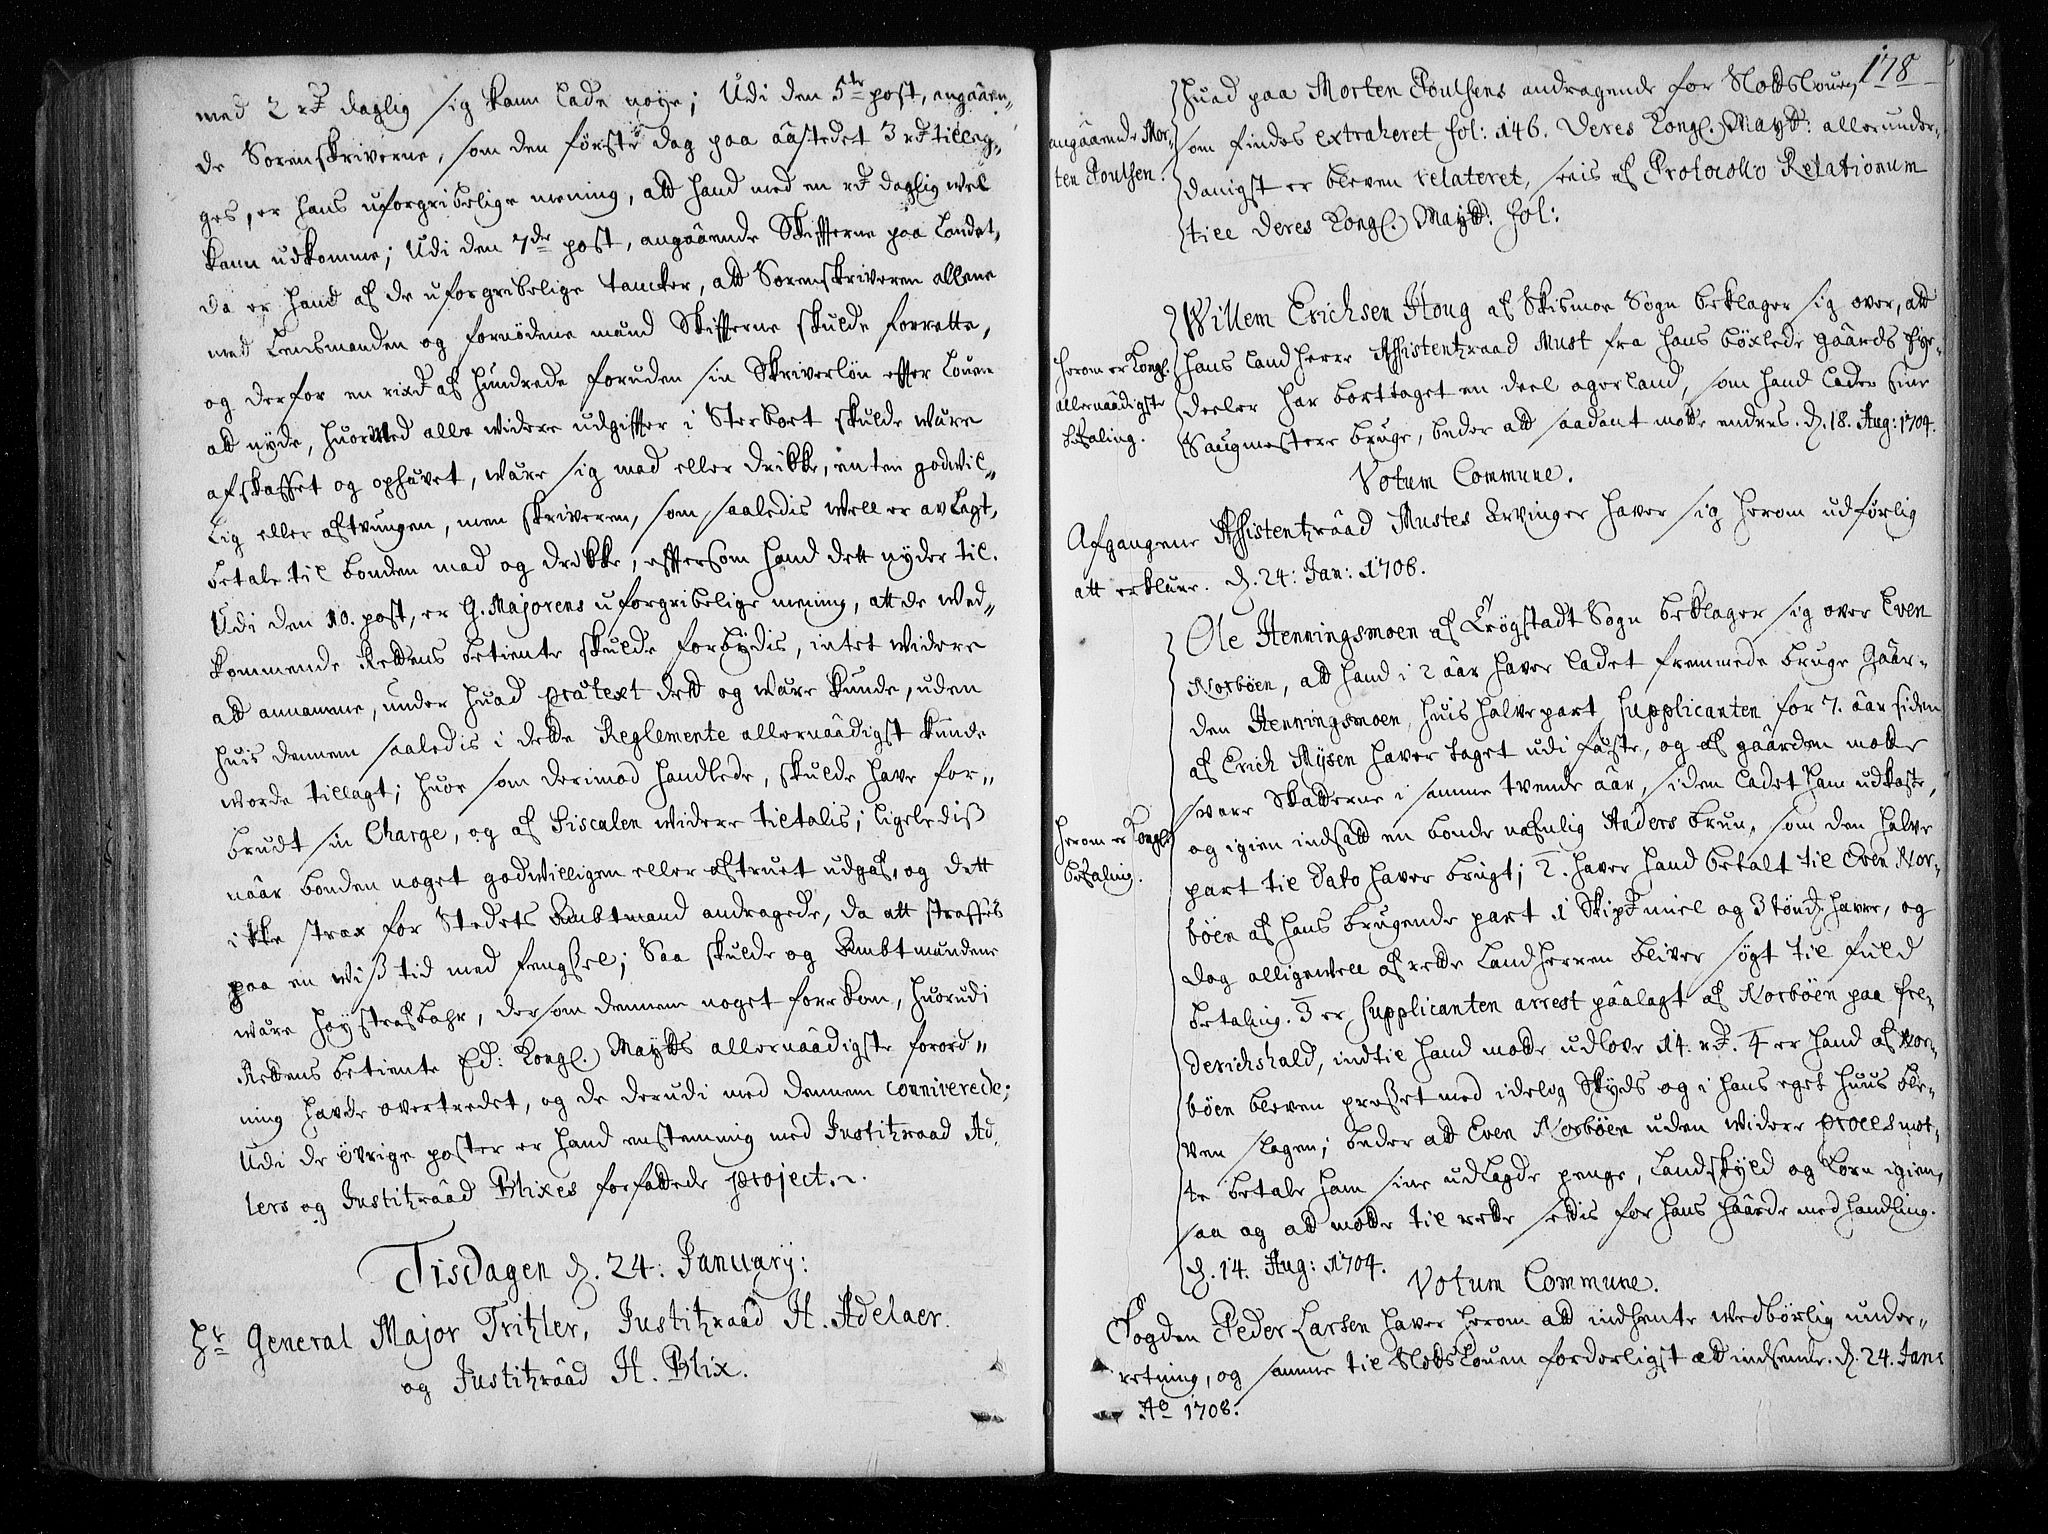 med 2 rd daglig sig kann lade nöye; Udi den 5te post, angaaen-
de Sorenskriverne, som den första dag paa aastedet 3 rd tilleg-
ges, er hans uforgribelige mening, att hand med en rd daglig wel
kann udkomme; Udi den 7de post, angaaende Skiffterne paa Landet,
da er hand af de uforgribelige tancker, att Sorenskriveren allene
med Lensmanden og fornödene mænd Skiffterne skulde forrette,
og derfor en rixd af hundrede foruden sin Skriverlön effter Louen
att nyde, huormed alle widere udgiffter i Sterboet skulde være
afskaffet og ophævet, være sig mad eller drikke, enten godwil-
lig eller aftvungen, men skriveren, som saaledis well er avlagt,
betale til bonden mad og drikke, efftersom hand dett nyder til.
Udi den 10. post, er G. Majorens uforgribelige mening, att de wed-
kommende Rettens betiente skulde forbydis, intet widere
att annamme, under huad prætext dett og være kunde, uden
huis dennem saaledis i dette Reglemente allernaadigst kunde
worde tillagt; huor som derimod handlede, skulde have for-
brudt sin Charge, og af Fiscalen widere tiltalis; ligelediss
naar bonden noget godwilligen eller aftruet udgaf, og dett
ikke strax for Stedets Ambtmand andragede, da att straffes
paa en wiss tid med fengssel; Saa skulde og Ambtmandene
være höystrafbahr, dersom dennem noget forekom, huorudi
Rettens betiente Ed: Kongl. Maytts allernaadigste forord-
ning hafde overtredet, og de derudi med dennem conniverede;
Udi de övrige poster er hand enstemmig med Justitzraad Ad-
lers og Justitzraad Blixes forfattede project.
Tisdagen d. 24. January:
Hr General Major Tritzler, Justitzraad H. Adelaer.
og Justitzraad H. Blix.
178
angaaende Mor-
ten Poulsen.
Huad paa Morten Poulsens andragende for Slottslouen,
som findes extraheret fol: 146. Deres Kongl. Maytt: allerunder-
danigst er bleven relateret, seis af Protocollo Relationum
till Deres Kongl. Maytt: fol:
Herom er Kongl.
allernaadigste
befaling.
Willem Erichsen Houg af Skismoe Sogn beklager sig over, att
hans Landherre Assistentzraad Must fra hans böxlede gaards Eye-
deeler har borttaget en deel agerland, som hand lader sine
Saugmestere bruge, beder att saadant motte endres. d. 18. Aug: 1704.
Votum Commune.
Afgangene Assistentzraad Mustes Arvinger haver sig herom udförlig
att erklære. d. 24: Jan: 1708.
Herom er Kongl.
befaling.
Ole Henningsmoen af Trögstadt Sogn beklager sig over Even
Norböen, att hand i 2 aar haver ladet fremmede bruge Gaar-
den Henningsmoen, huis halvepart Supplicanten for 7. aar siden
af Erich Mysen haver taget udi fæste, og af gaarden motte
svare Skatterne i samme tvende aar, siden ladet ham udkaste,
og igien indsatt en bonde nafnlig Anders brun, som den halve
part til Dato haver brugt; 2. haver hand betalt til Even Nor-
böen af hans brugende part 1 Skipd miel og 3 tönd: haver, og
dog alligewell af rette Landherren bliver sögt til fuld
betaling. 3 er Supplicanten arrest paalagt af Norböen paa Fre-
derichshald, indtil hand motte udlove 14. rd. 4 er hand af Nor-
böen bleven presset med idelog Skyds og i hans eget huus ble-
ven slagen; beder att Even Norböen uden widere proces mot-
te betale ham sine udlagde penge, Landskyld og korn igien,
saa og att motte til rette settis for hans haarde medhandling.
d. 14. Aug: 1704.
Votum Commune.
Fogden Peder Larsen haver herom att indhente wedbörlig under-
retning, og samme til Slottslouen forderligst att indsende. d. 24. Jan:
Ao 1708.